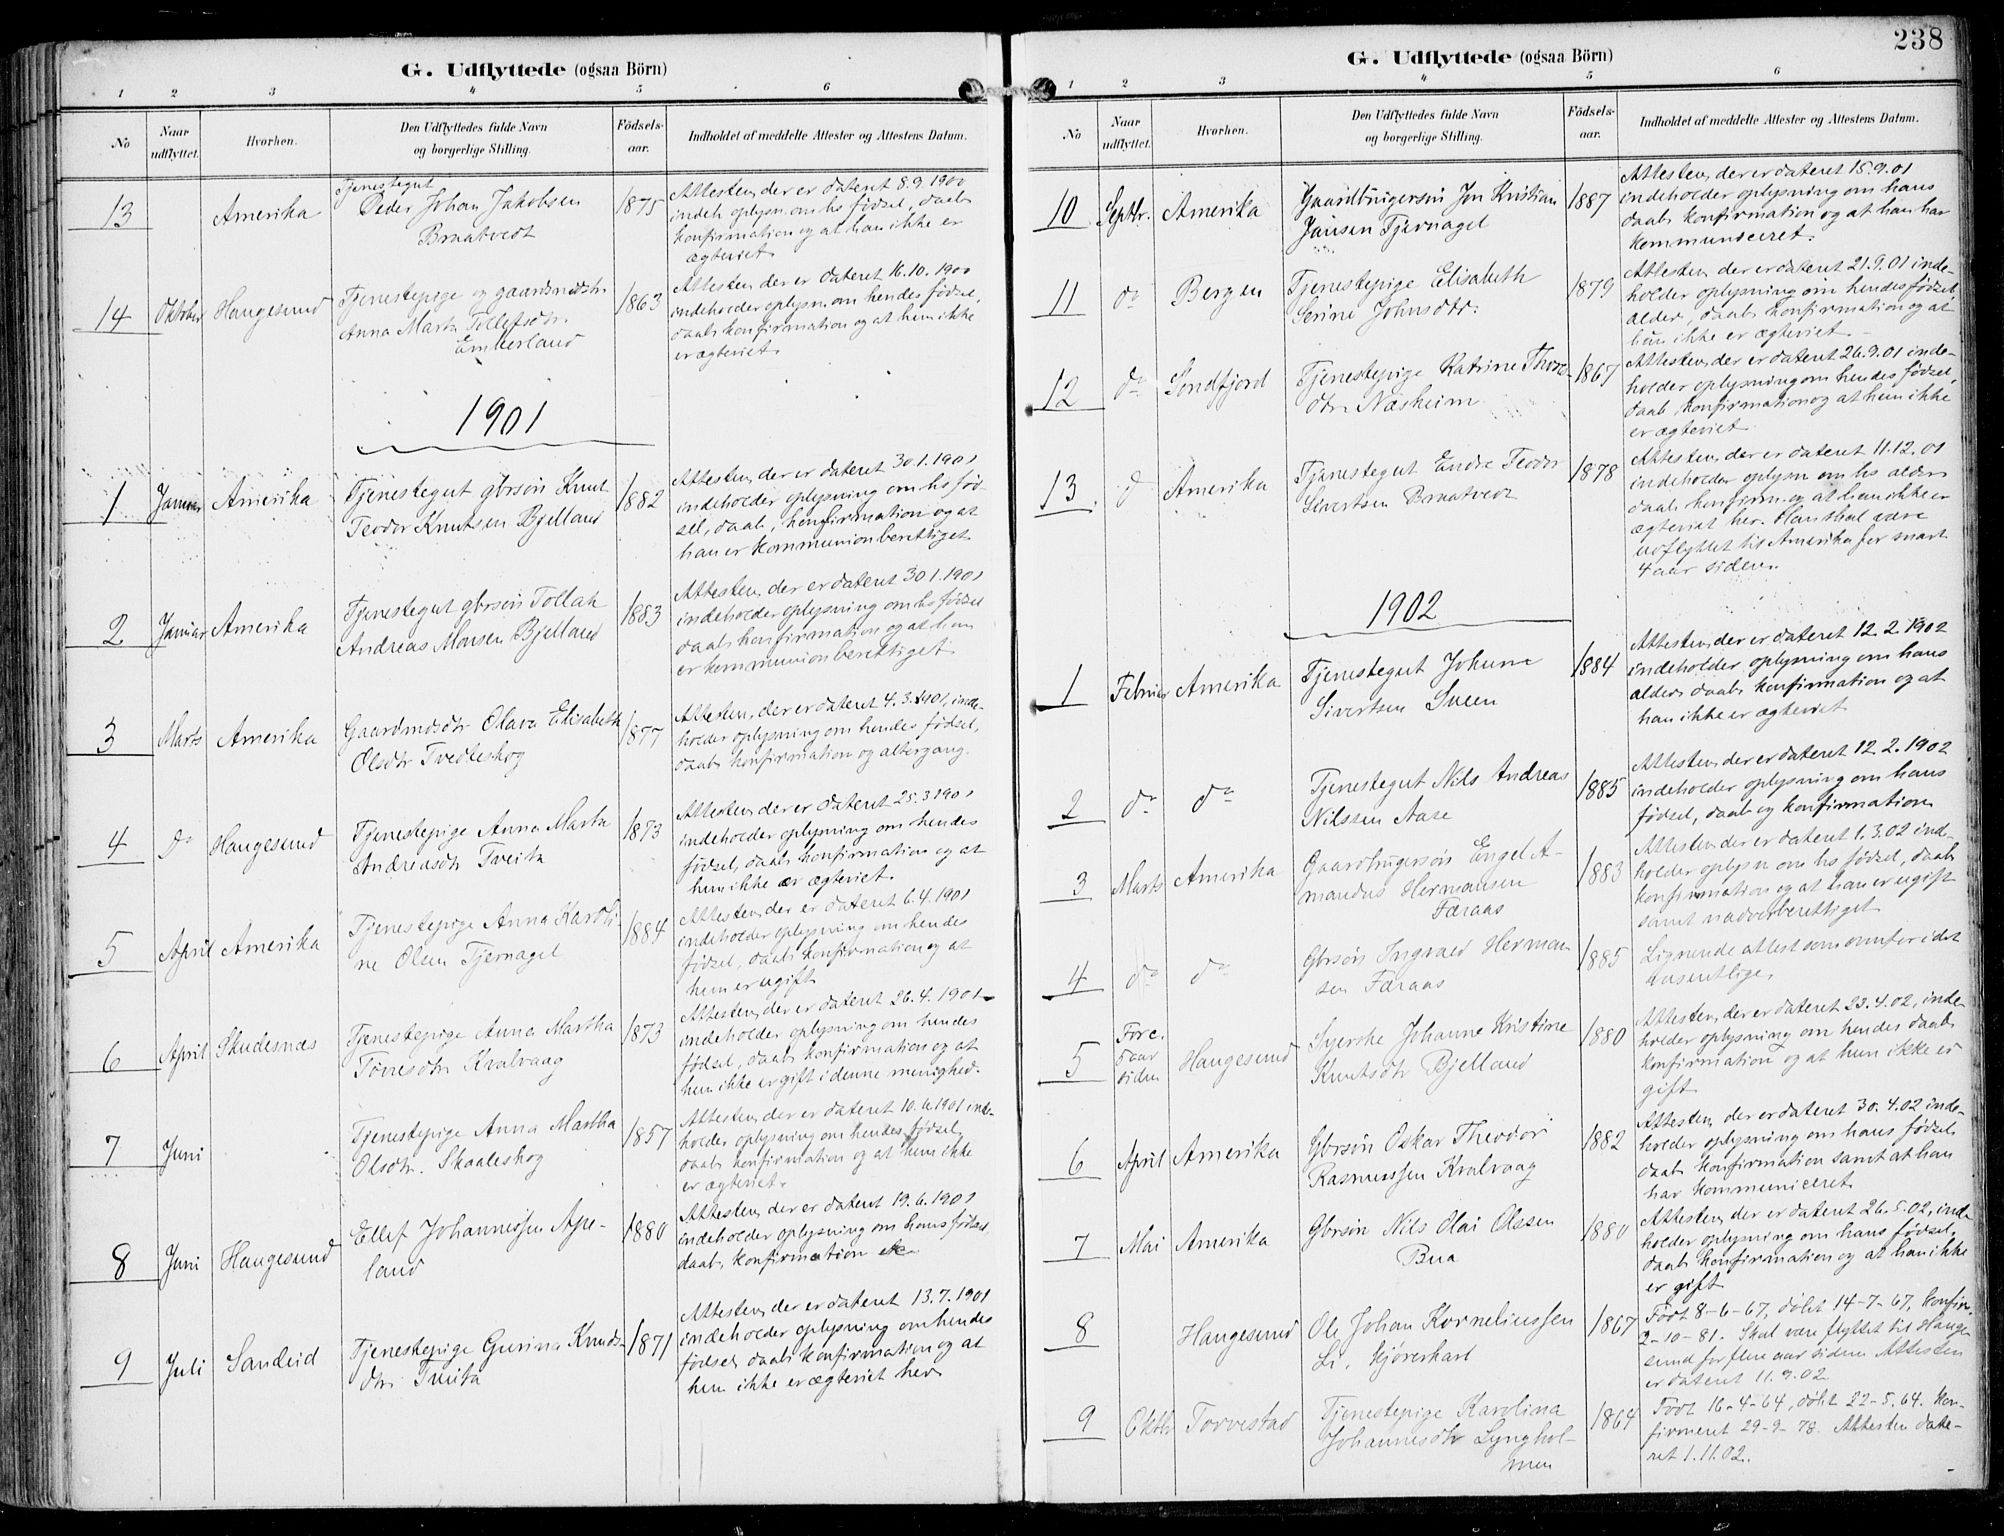 238
G. Udflyttede (ogsaa Börn)
1 2 3 4 5 6
No
Naar udflyttet.
Hvorhen.
Den Udflyttedes fulde Navn
og borgerlige Stilling.
Födsels-
aar.
Indholdet af meddelte Attester og Attestens Datum.
13
Amerika
Tjenestegut
Peder Johan Jakobsen
Braatvedt
1875
Attesten, der er dateret 8.9.1900
indeh. oplysn. om hs fødsel, daab
konfirmation og at han ikke er
ægteviet.
14
Oktober
Haugesund
Tjenestepige og gaardmdsdtr.
Anna Marta Tollefsdtr.
Emberland
1863
Attesten, der er dateret 16.10.1900
indeholder oplysn. om hendes fødsel,
daab, konfirmation og at hun ikke
er ægteviet.
1901
1
Januar
Amerika
Tjenestegut gbrsøn Knut
Teodor Knutsen Bjelland
1882
Attesten, der er dateret 30.1.1901
indeholder oplysning om hs fød-
sel, daab, konfirmation og at
han er kommunionberettiget
2
Januar
Amerika
Tjenestegut gbrsøn Tollak
Andreas Monsen Bjelland
1883
Attesten, der er dateret 30.1.1901
indeholder oplysning om hs fødsel
daab, konfirmation og at han
er kommunionberettiget
3
Marts
Amerika
Gaardmdsdtr Olava Elisabeth
Olsdtr Tvedteskog
1877
Attesten, der er dateret 4.3.1901, inde-
holder oplysning om hendes fødsel,
daab, konfirmation og altergang.
4
do
Haugesund
Tjenestepige Anna Marta
Andreasdtr Tveita
1873
Attesten, der er dateret 25.3.1901
indeholder oplysning om hendes
fødsel, daab, konfirmation og at
hun ikke er ægteviet.
5
April
Amerika
Tjenestepige Anna Karoli-
ne Olsen Tjernagel
1884
Attesten, der er dateret 6.4.1901
indeholder oplysning om hendes
fødsel, daab, konfirmation og at
hun er ugift
6
April
Skudesnæs
Tjenestepige Anna Martha
Tørresdtr Kvalvaag
1873
Attesten, der er dateret 26.4.1901
indeholder oplysning om hendes
fødsel, daab, konfirmation og at
hun ikke er gift i denne menighed.
7
Juni
Tjenestepige Anna Martha
Olsdtr. Skaaleskog
1857
Attesten, der er dateret 10.6.1901 inde-
holder oplysning om hendes fødsel,
daab, konfirmation og at hun ikke
er ægteviet.
8
Juni
Haugesund
Ellef Johannessen Ape-
land
1880
Attesten, der er dateret 19.6.1901
indeholder oplysning om hans fødsel,
daab, konfirmation
9
Juli
Sandeid
Tjenestepige Gurina Knuds-
dtr. Tveita
1871
Attesten, der er dateret 13.7.1901
indeholder oplysning om hendes
fødsel, daab, konfirmation og at
hun ikke er ægteviet her
G. Udflyttede (ogsaa Börn)
1 2 3 4 5 6
No
Naar udflyttet.
Hvorhen.
Den Udflyttedes fulde Navn
og borgerlige Stilling.
Födsels-
aar.
Indholdet af meddelte Attester og Attestens Datum.
10
Septbr.
Amerika
Gaardbrugersøn Jon Kristian
Jansen Tjernagel
1887
Attesten, der er dateret 15.9.01
indeholder oplysning om hans
daab, konfirmation og at han har
kommuniceret.
11
do
Bergen
Tjenestepige Elisabeth
Serine Johnsdtr.
1879
Attesten, der er dateret 21.9.01 inde-
holder oplysning om hendes fødsel,
alder, daab, konfirmation og at
hun ikke er ægteviet.
12
do
Søndfjord
Tjenestepige Katrine Thors-
dtr. Næsheim
1867
Attesten, der er dateret 26.9.01 inde-
holder oplysning om hendes fødsel,
daab, konfirmation og at hun ikke
er ægteviet.
13
Amerika
Tjenestegut Endre Teodor
Sivertsen Braatvedt
1878
Attesten, der er dateret 11.12.01
indeholder oplysn. om hs alder
daab, konfirm. og at han ikke er
ægteviet her. Han skal være
udflyttet til Amerika for snart
4 aar siden.
1902
1
Februar
Amerika
Tjenestegut Johann
Sivertsen Sveen
1884
Attesten, der er dateret 12.2.1902
indeholder oplysning om hans
alder, daab, konfirmation og at
han ikke er ægteviet
2
do
do
Tjenestegut Nils Andreas
Nilssen Aase
1885
Attesten, der er dateret 12.2.1902
indeholder oplysning om hans
fødsel, daab og konfirmation
3
Marts
Amerika
Gaardbrugersøn Engel A-
mandus Hermansen
Færaas
1883
Attesten, der er dateret 1.3.02 inde-
holder oplysn om hs fødsel, daab
konfirmation og at han er ugift
samt nadverberettiget
4
do
do
Gbrsøn Ingvald Herman-
sen Færaas
1885
Lignende attest som ovenfor i det
væsentlige.
5
5 aar
siden
Haugesund
Syerske Johanne Kristine
Knutsdtr Bjelland
1880
Attesten, der er dateret 23.4.02, inde-
holder oplysning om hendes daab,
konfirmation og at hun ikke er
gift
6
April
Amerika
Gbrsøn Oskar Theodor
Rasmussen Kvalvaag
1882
Attesten, der er dateret 30.4.02 inde-
holder oplysning om hans fødsel,
daab, konfirmation samt at han
har kommuniceret
7
Mai
Amerika
Gbrsøn Nils Olai Olssen
Bua
1880
Attesten, der er dateret 26.5.02, inde-
holder oplysning om hans fødsel,
daab, konfirmation og at han ikke
er gift
8
Haugesund
Ole Johan Korneliussen
Li, kjørerkarl
1867
Født 8-6-67, døbt 14-7-67, konfir.
2-10-81. Skal være flyttet til Hauge-
sund for flere aar siden. Attesten
er dateret 11.9.02.
9
Oktbr
Torvestad
Tjenestepige Karolina
Johannesdtr Lynghol-
men
1864
Født 16-4-64, døbt 22-5.64. Kon-
firmeret 29-9-78. Attesten date-
ret 1.11.02.